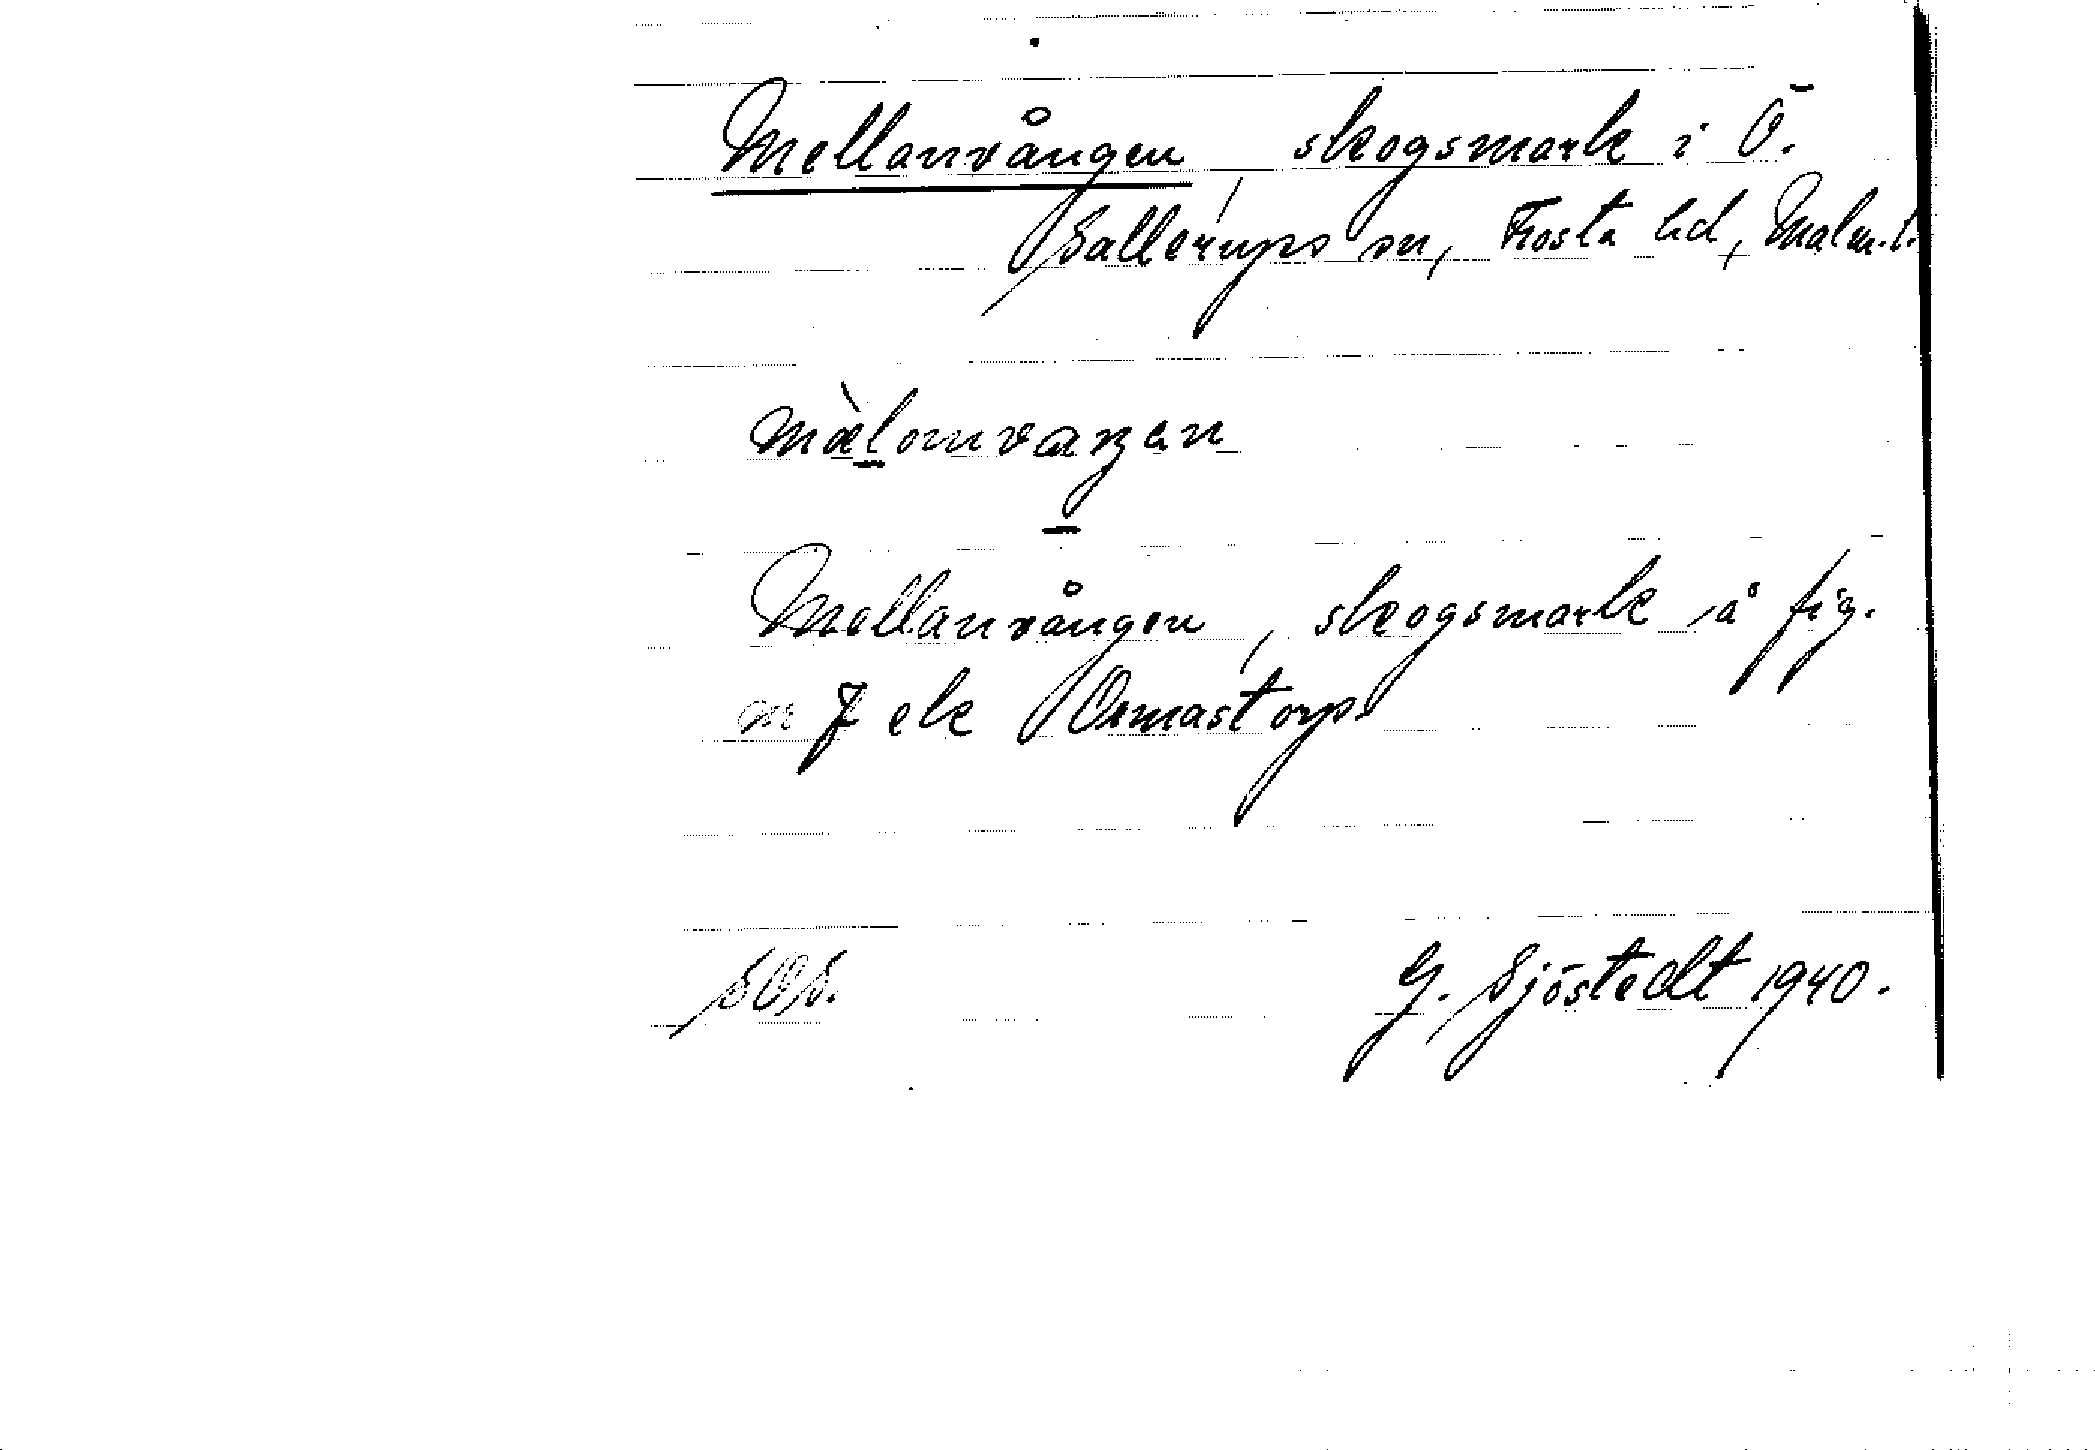 Mellanvången, skogsmark i Ö.
Sallerups sn, Frosta hd, Malm.l.
mæ̀lomvaŋen
Mellanvången, skogsmark å fig.
nr 7 ek Osmastorp.
SOS. G. Sjöstedt 1940.